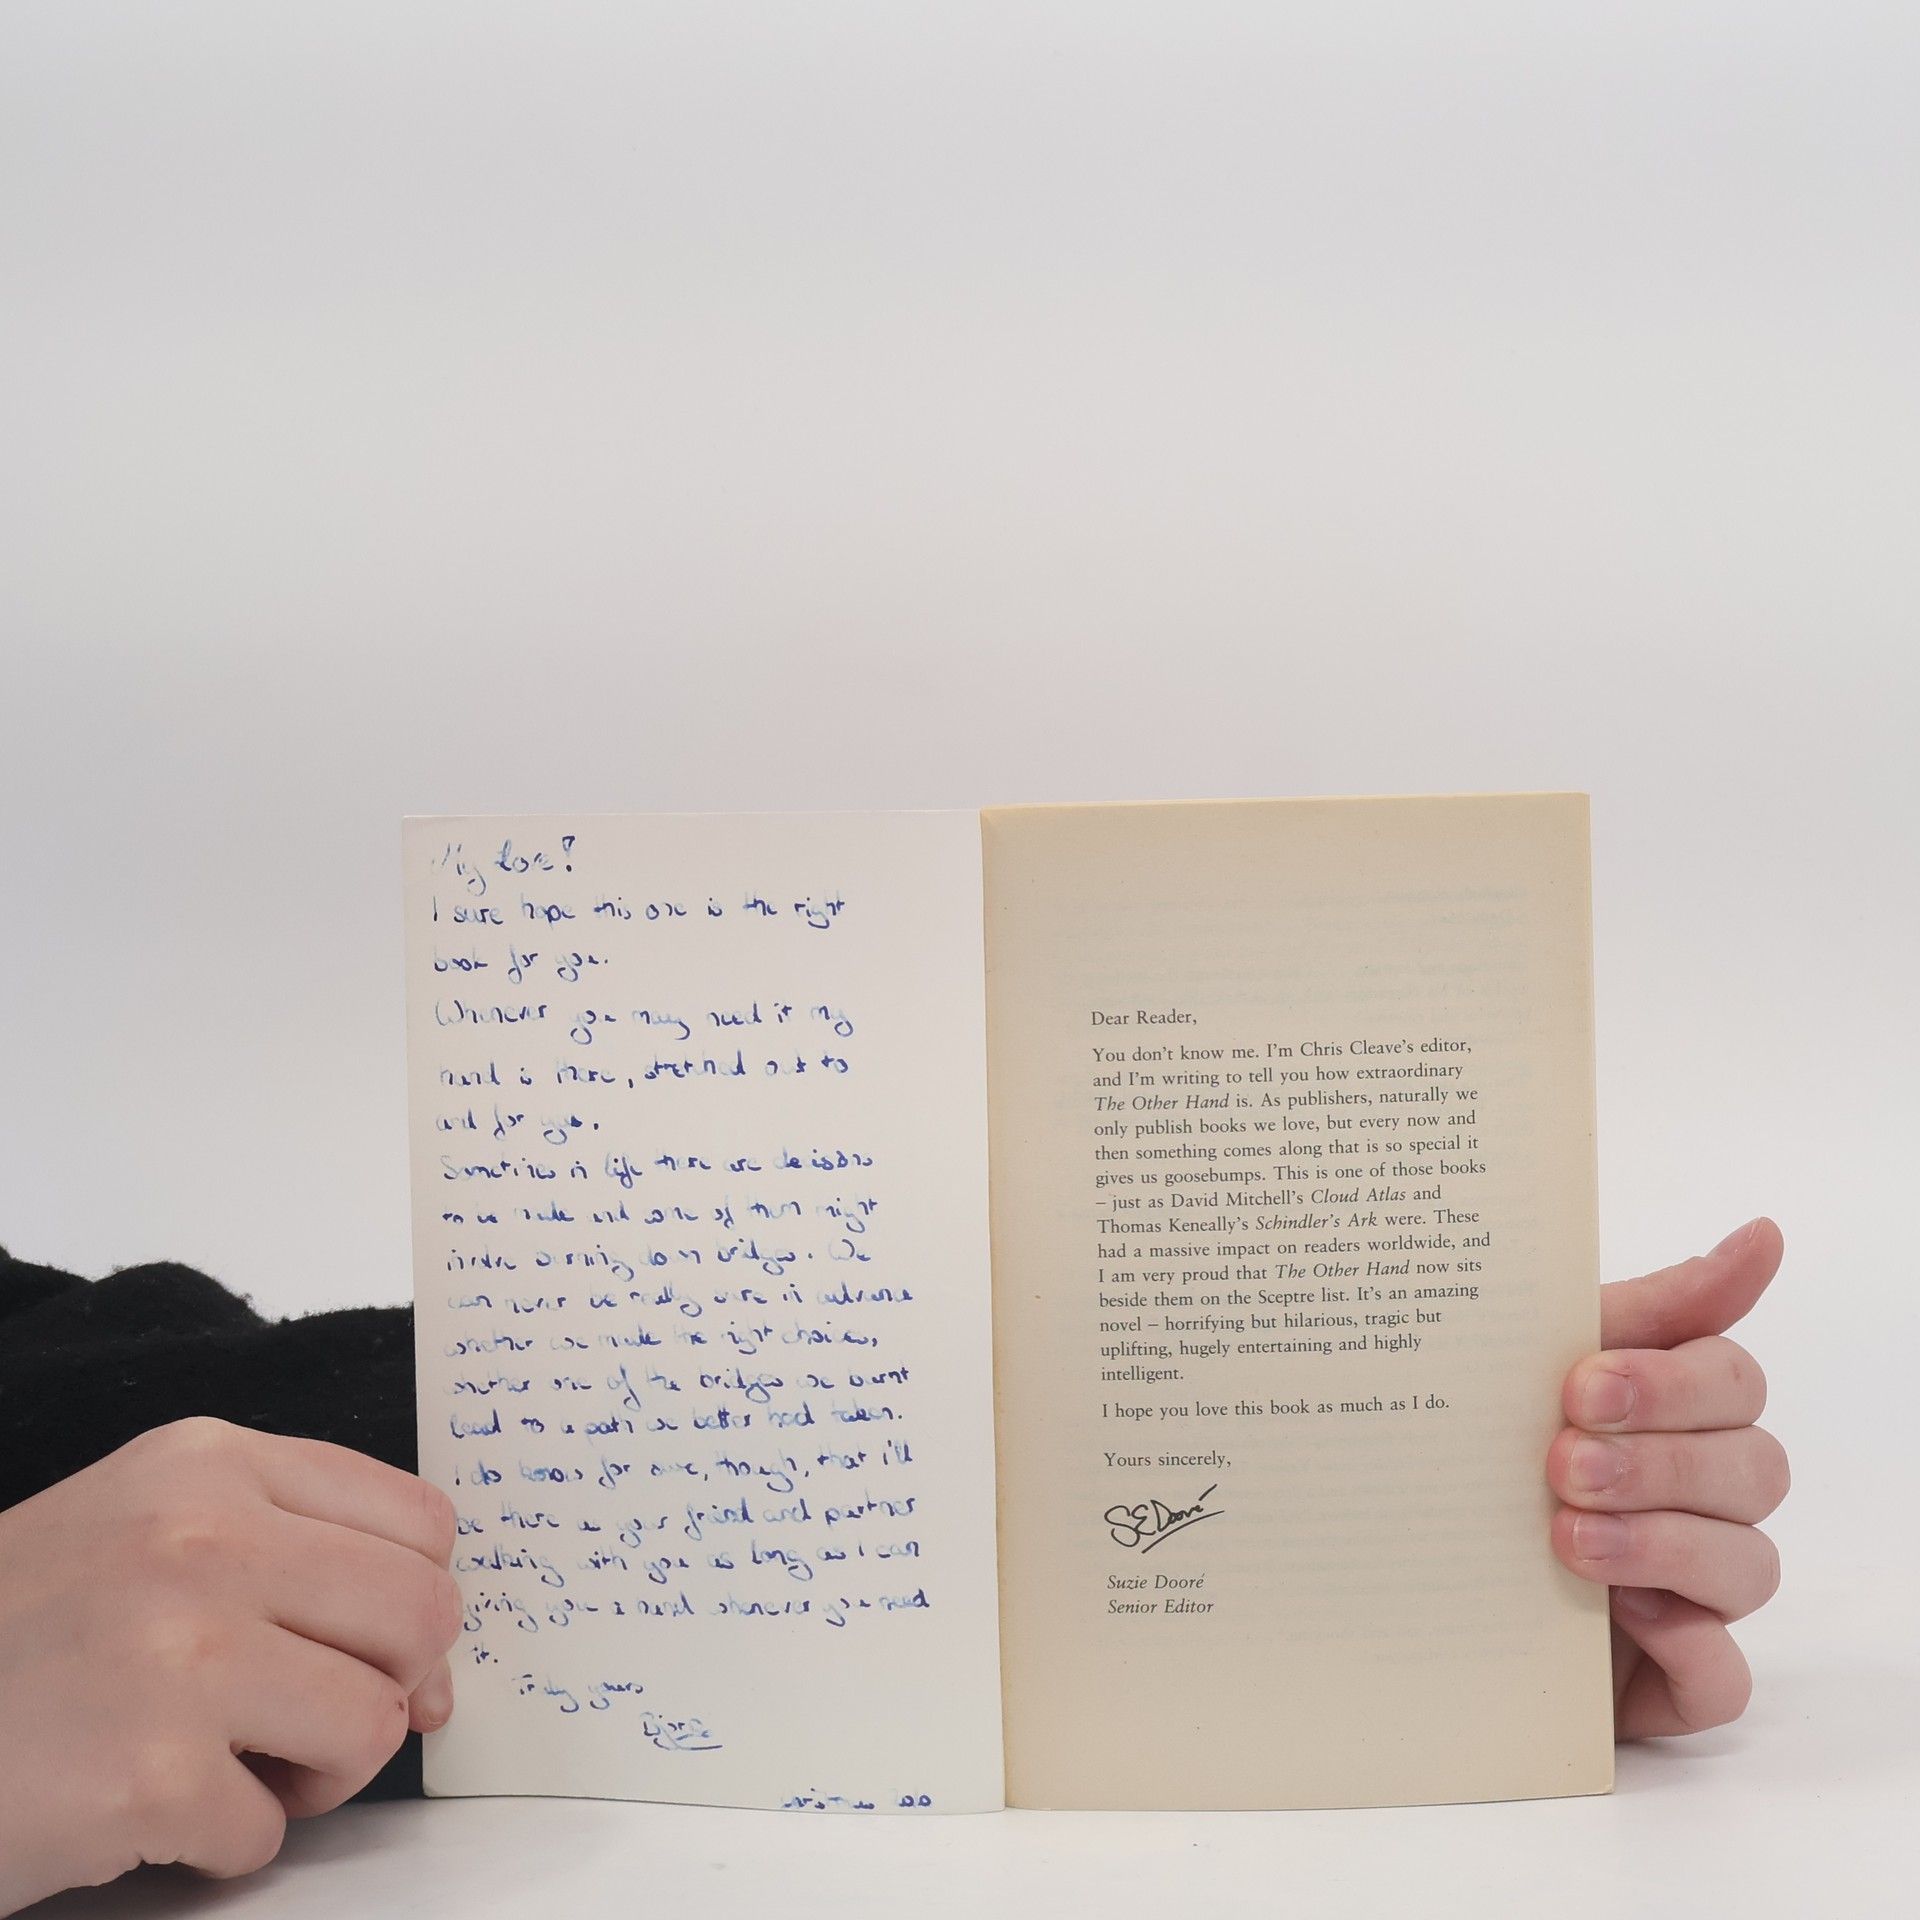 My love!
I sure hope this one is the right
book for you.
Whenever you may need it my
hand is there, stretched out to
and for you.
Sometimes in life there are decisions
to be made and some of them might
involve burning down bridges. We
can never be really sure in advance
whether we made the right choices,
whether one of the bridges we burnt
lead to a path we better had taken.
I do know for sure, though, that i'll
be there as your friend and partner
walking with you as long as I can
giving you a hand whenever you need
it.
Truly yours
Dear Reader,
You don't know me. I'm Chris Cleave's editor,
and I'm writing to tell you how extraordinary
The Other Hand is. As publishers, naturally we
only publish books we love, but every now and
then something comes along that is so special it
gives us goosebumps. This is one of those books
– just as David Mitchell's Cloud Atlas and
Thomas Keneally's Schindler's Ark were. These
had a massive impact on readers worldwide, and
I am very proud that The Other Hand now sits
beside them on the Sceptre list. It's an amazing
novel – horrifying but hilarious, tragic but
uplifting, hugely entertaining and highly
intelligent.
I hope you love this book as much as I do.
Yours sincerely,
SEDooré
Suzie Dooré
Senior Editor